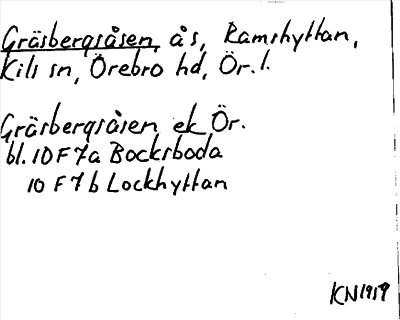 Gräsbergsåsen, ås, Ramshyttan,
Kils sn, Örebro hd, Ör. l.
Gräsbergsåsen ek Ör.
bl. 10 F 7a Bocksboda
10 F 7 b Lockhyttan
KN 1959